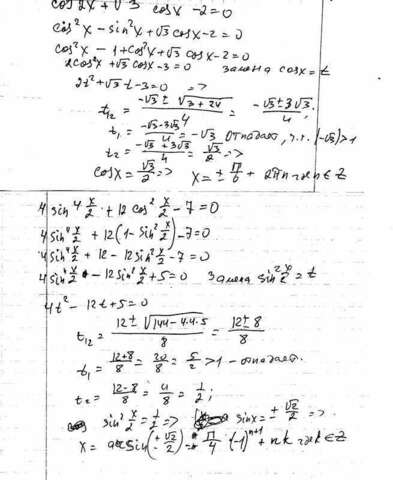 cos2x + √3 cosx - 2 = 0
cos²x - sin²x + √3 cosx - 2 = 0
cos²x - 1 + cos²x + √3 cosx - 2 = 0
2cos²x + √3 cosx - 3 = 0 замена cosx = t
2t² + √3 t - 3 = 0 =>
t₁₂ = (-√3 ± √(3+24))/4 = (-√3 ± 3√3)/4;
t₁ = (-√3 - 3√3)/4 = -√3 отпадает, т.к. |-√3| > 1
t₂ = (-√3 + 3√3)/4 = √3/2 =>
cosx = √3/2 => x = ± π/6 + 2πn где n ∈ Z
4 sin⁴ x/2 + 12 cos² x/2 - 7 = 0
4 sin⁴ x/2 + 12(1 - sin² x/2) - 7 = 0
4 sin⁴ x/2 + 12 - 12 sin² x/2 - 7 = 0
4 sin⁴ x/2 - 12 sin² x/2 + 5 = 0 Замена sin² x/2 = t
4t² - 12t + 5 = 0
t₁₂ = (12 ± √(144 - 4·4·5))/8 = (12 ± 8)/8
t₁ = (12+8)/8 = 20/8 = 5/2 > 1 - отпадает.
t₂ = (12-8)/8 = 4/8 = 1/2;
sin² x/2 = 1/2 => sinx = ± √2/2 =>
x = arcsin(± √2/2) = π/4 (-1)ⁿ⁺¹ + πk где k ∈ Z